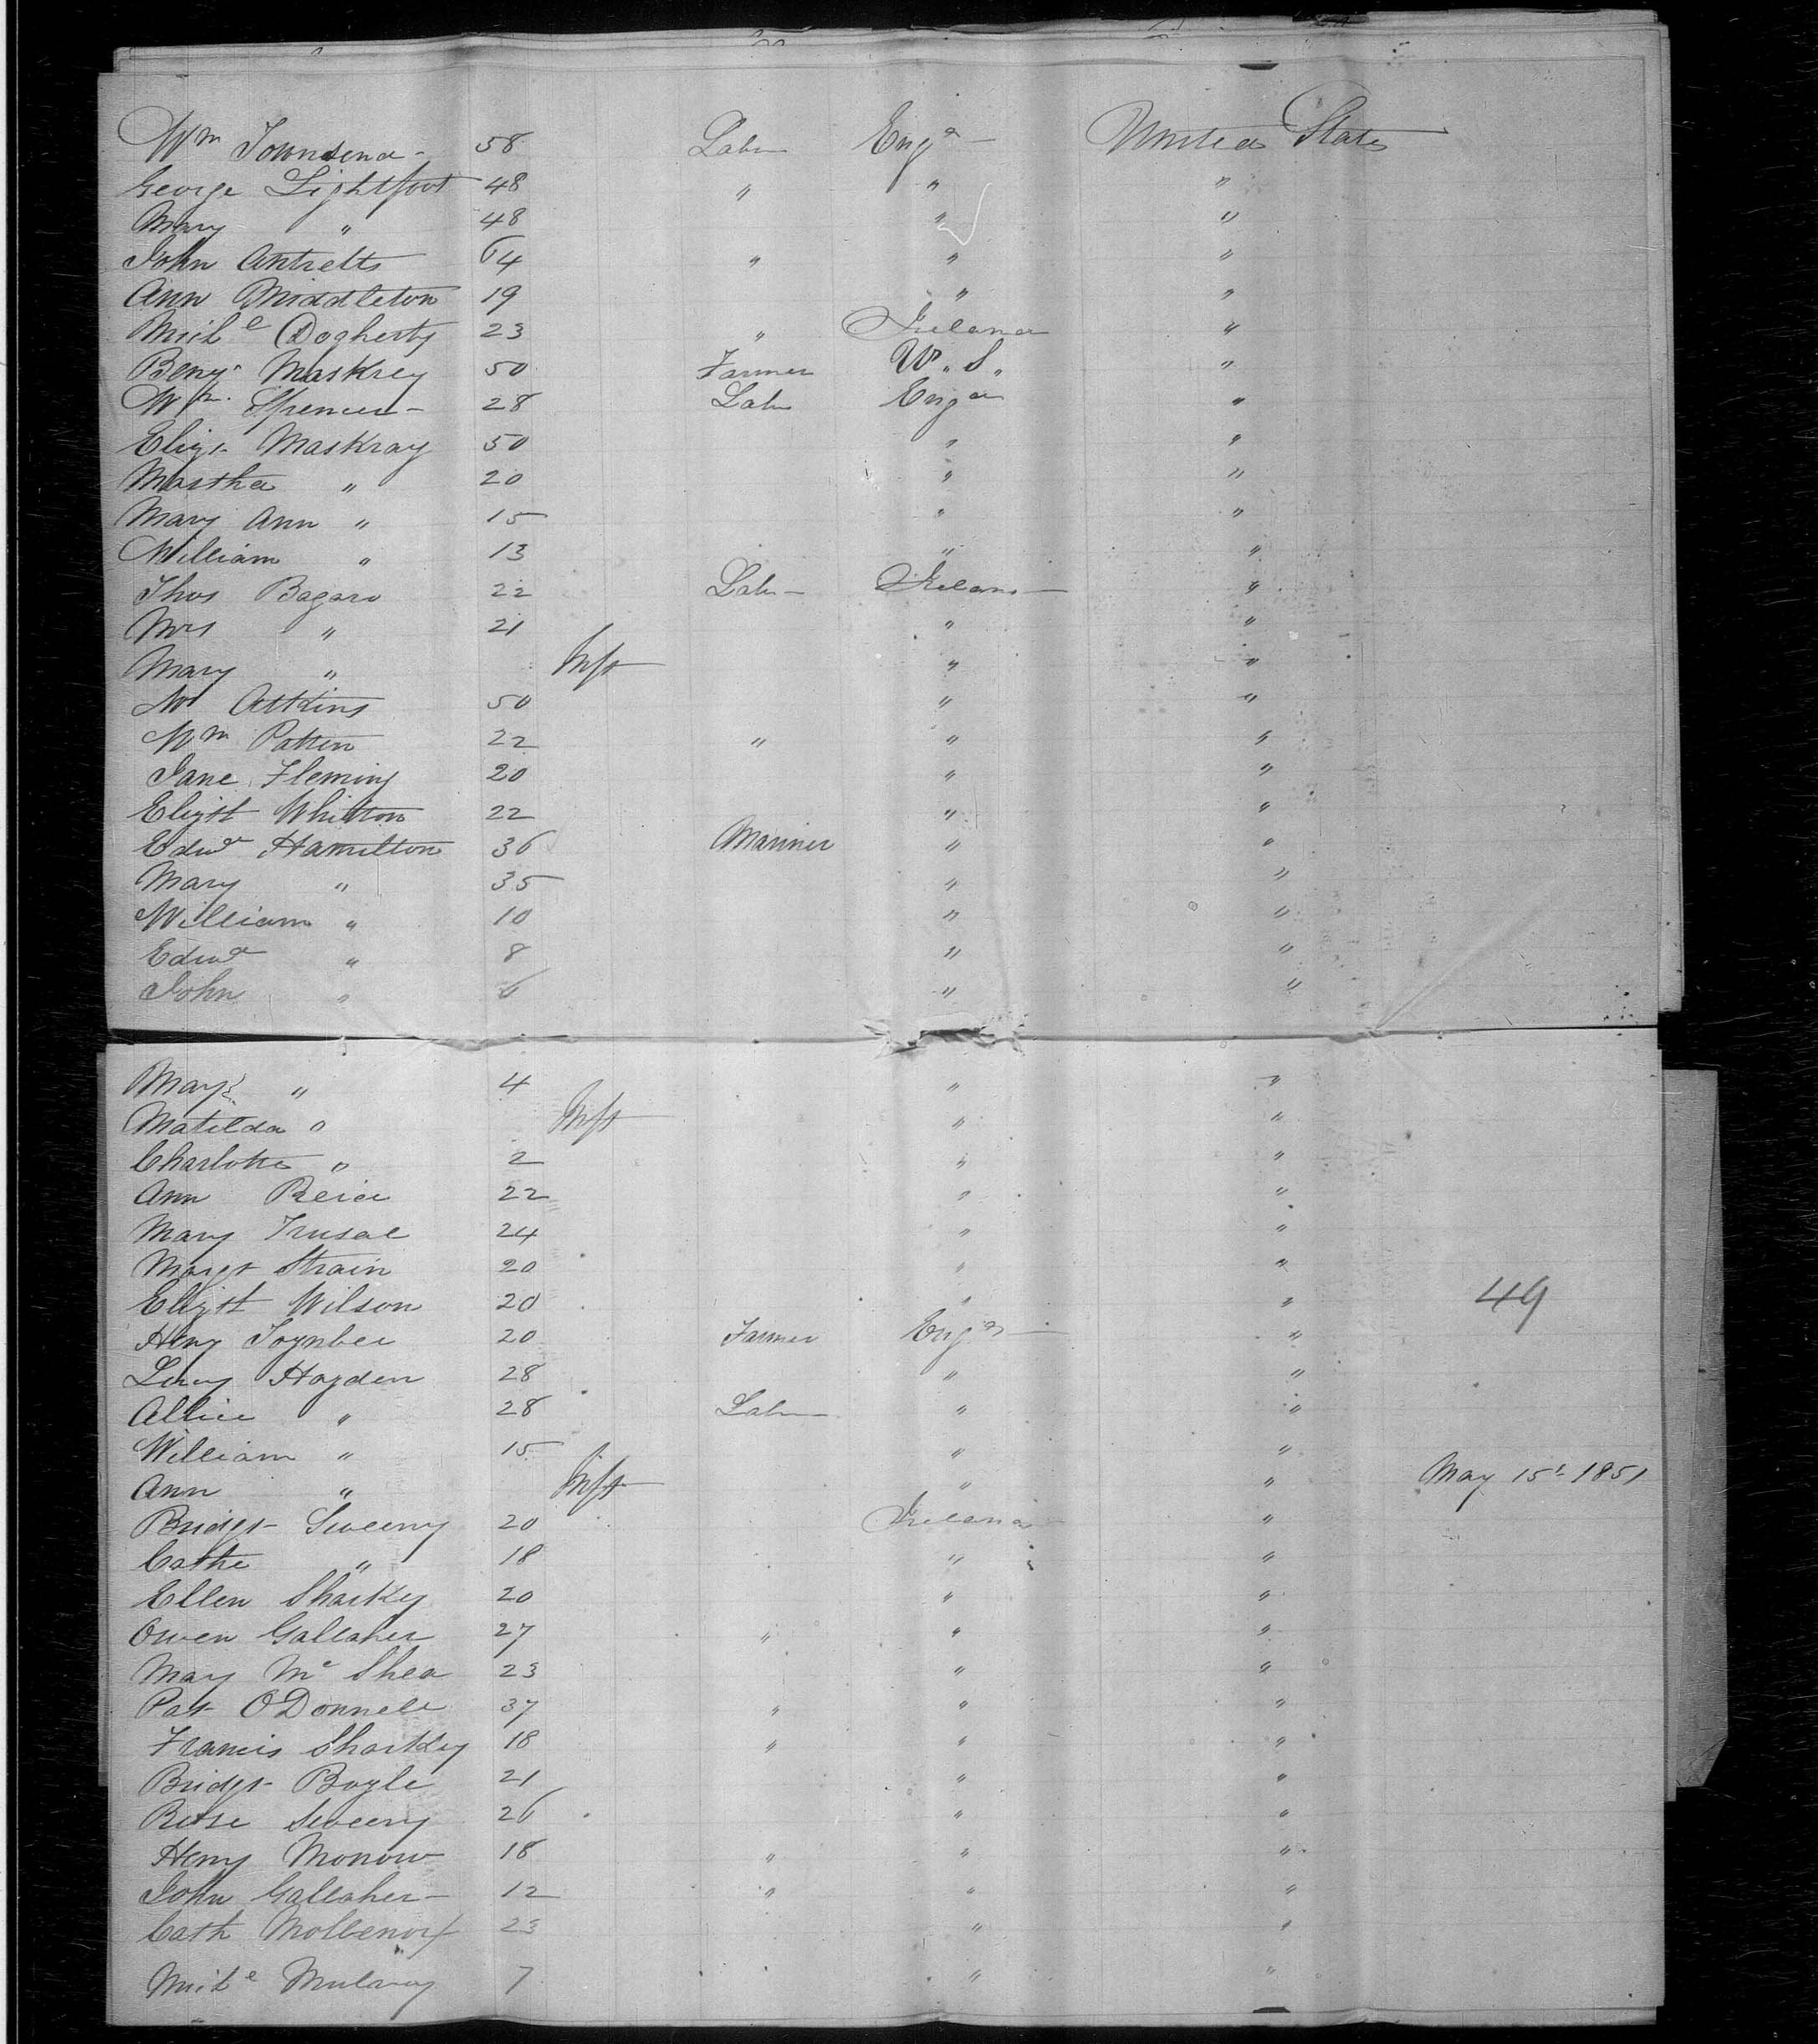 Wm Townsend - 58 Labr Engd United States
George Lightfoot 48 " " "
Mary " 48 " "
John Antrelts 64 " " "
Ann Middleton 19 " "
Michl Dogherty 23 " Ireland "
Benj. Maskrey 50 Farmer U. S. "
Wm. Spencer - 28 Labr Engd "
Eliz. Maskray 50 " "
Martha " 20 " "
Mary Ann " 15 " "
William " 13 " "
Thos 22 Labr - Ireland "
Mrs " 21 " "
Mary " Inft " "
Atkins 50 " "
Wm Patten 22 " " "
Jane Fleming 20 " "
Elizth Whitton 22 " "
Edwd Hamilton 36 Mariner " "
Mary " 35 " "
William " 10 " "
Edwd " 8 " "
John " 6 " "
Mary " 4 " "
Matilda " Inft " "
Charlotte " 2 " "
Ann Reid 22 " "
Mary 24 " "
Margt Strain 20 " "
Elizth Wilson 20 " " 49
Heny Toynbee 20 Farmer Engd "
Hayden 28 " "
Allice " 28 Labr " "
William " 15 " "
Ann " Inft " " May 15t 1851
Bridgt Sweeny 20 Ireland "
Cathe " 18 " "
Ellen Sharkey 20 " "
Owen Gallaher 27 " " "
Mary Mc Shea 23 " "
Pat O'Donnell 37 " " "
Francis Sharkey 18 " " "
Bridgt Boyle 21 " "
Rose Sweeny 26 " "
Heny Monow 18 " " "
John Gallaher - 12 " " "
Cath 23 " "
Michl Mulroy 7 " "